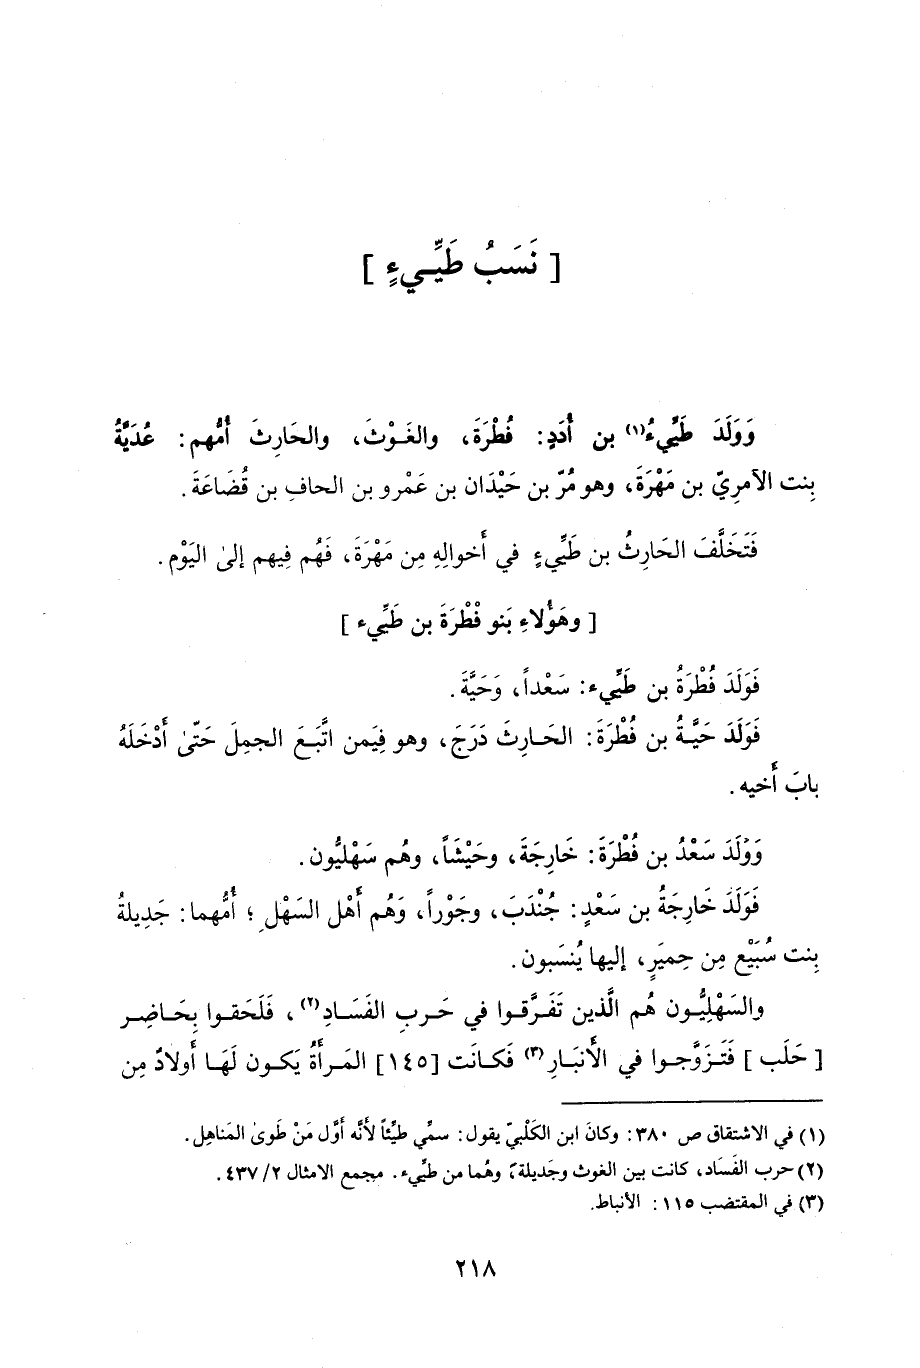 [ نَسَبُ طَيِّيءٍ ]
وَوَلَدَ طَيِّيءُ(١) بن أُدَدٍ: فُطْرَةَ، والغَوْثَ، والحَارِثَ أُمُّهم: عُدَيَّةُ
بِنت الآمرِيّ بن مَهْرَةَ، وهو مُرّ بن حَيْدَان بن عَمْرو بن الحافِ بن قُضَاعَةَ.
فَتَخَلَّفَ الحَارِثُ بن طَيِّيءٍ في أَخوالِهِ مِن مَهْرَةَ، فَهُم فِيهم إلىٰ اليَوْم.
[ وهَؤُلاءِ بَنو فُطْرَةَ بن طَيِّيء ]
فَوَلَدَ فُطْرَةُ بن طَيِّيء: سَعْداً، وَحَيَّةَ.
فَوَلَدَ حَيَّةُ بن فُطْرَةَ: الحَارِثَ دَرَجَ، وهو فِيَمن اتَّبَعَ الجمِلَ حَتّىٰ أَدْخَلَهُ
بابَ أَخيه.
وَوَلَدَ سَعْدُ بن فُطْرَةَ: خَارِجَةَ، وحَيْشَاً، وهُم سَهْلِيُّون.
فَوَلَدَ خَارِجَةُ بن سَعْدٍ: جُنْدَبَ، وجَوْراً، وَهُم أَهْل السَهْلِ؛ أُمُّهما: جَدِيلةُ
بِنت سُبَيْع مِن حِميَرٍ، إليها يُنسَبون.
والسَهْلِيُّون هُم الَّذين تَفَرَّقوا في حَربِ الفَسَادِ(٢)، فَلَحَقوا بِحَاضِر
[ حَلَب ] فَتَزَوَّجوا في الأَنبَارِ(٣) فَكانَت [١٤٥] المَرأَةُ يَكون لَهَا أولادٌ مِن
(١) في الاشتقاق ص ٣٨٠: وكانَ ابن الكَلْبيّ يقول: سمِّي طيِّئاً لأنَّه أوَّل مَنْ طَوىٰ المَناهِل.
(٢) حرب الفَسَاد، كانت بين الغوث وجَديلة، وهُما من طيِّيء. مجمع الامثال ٢/ ٤٣٧.
(٣) في المقتضب ١١٥: الأنباط.
٢١٨